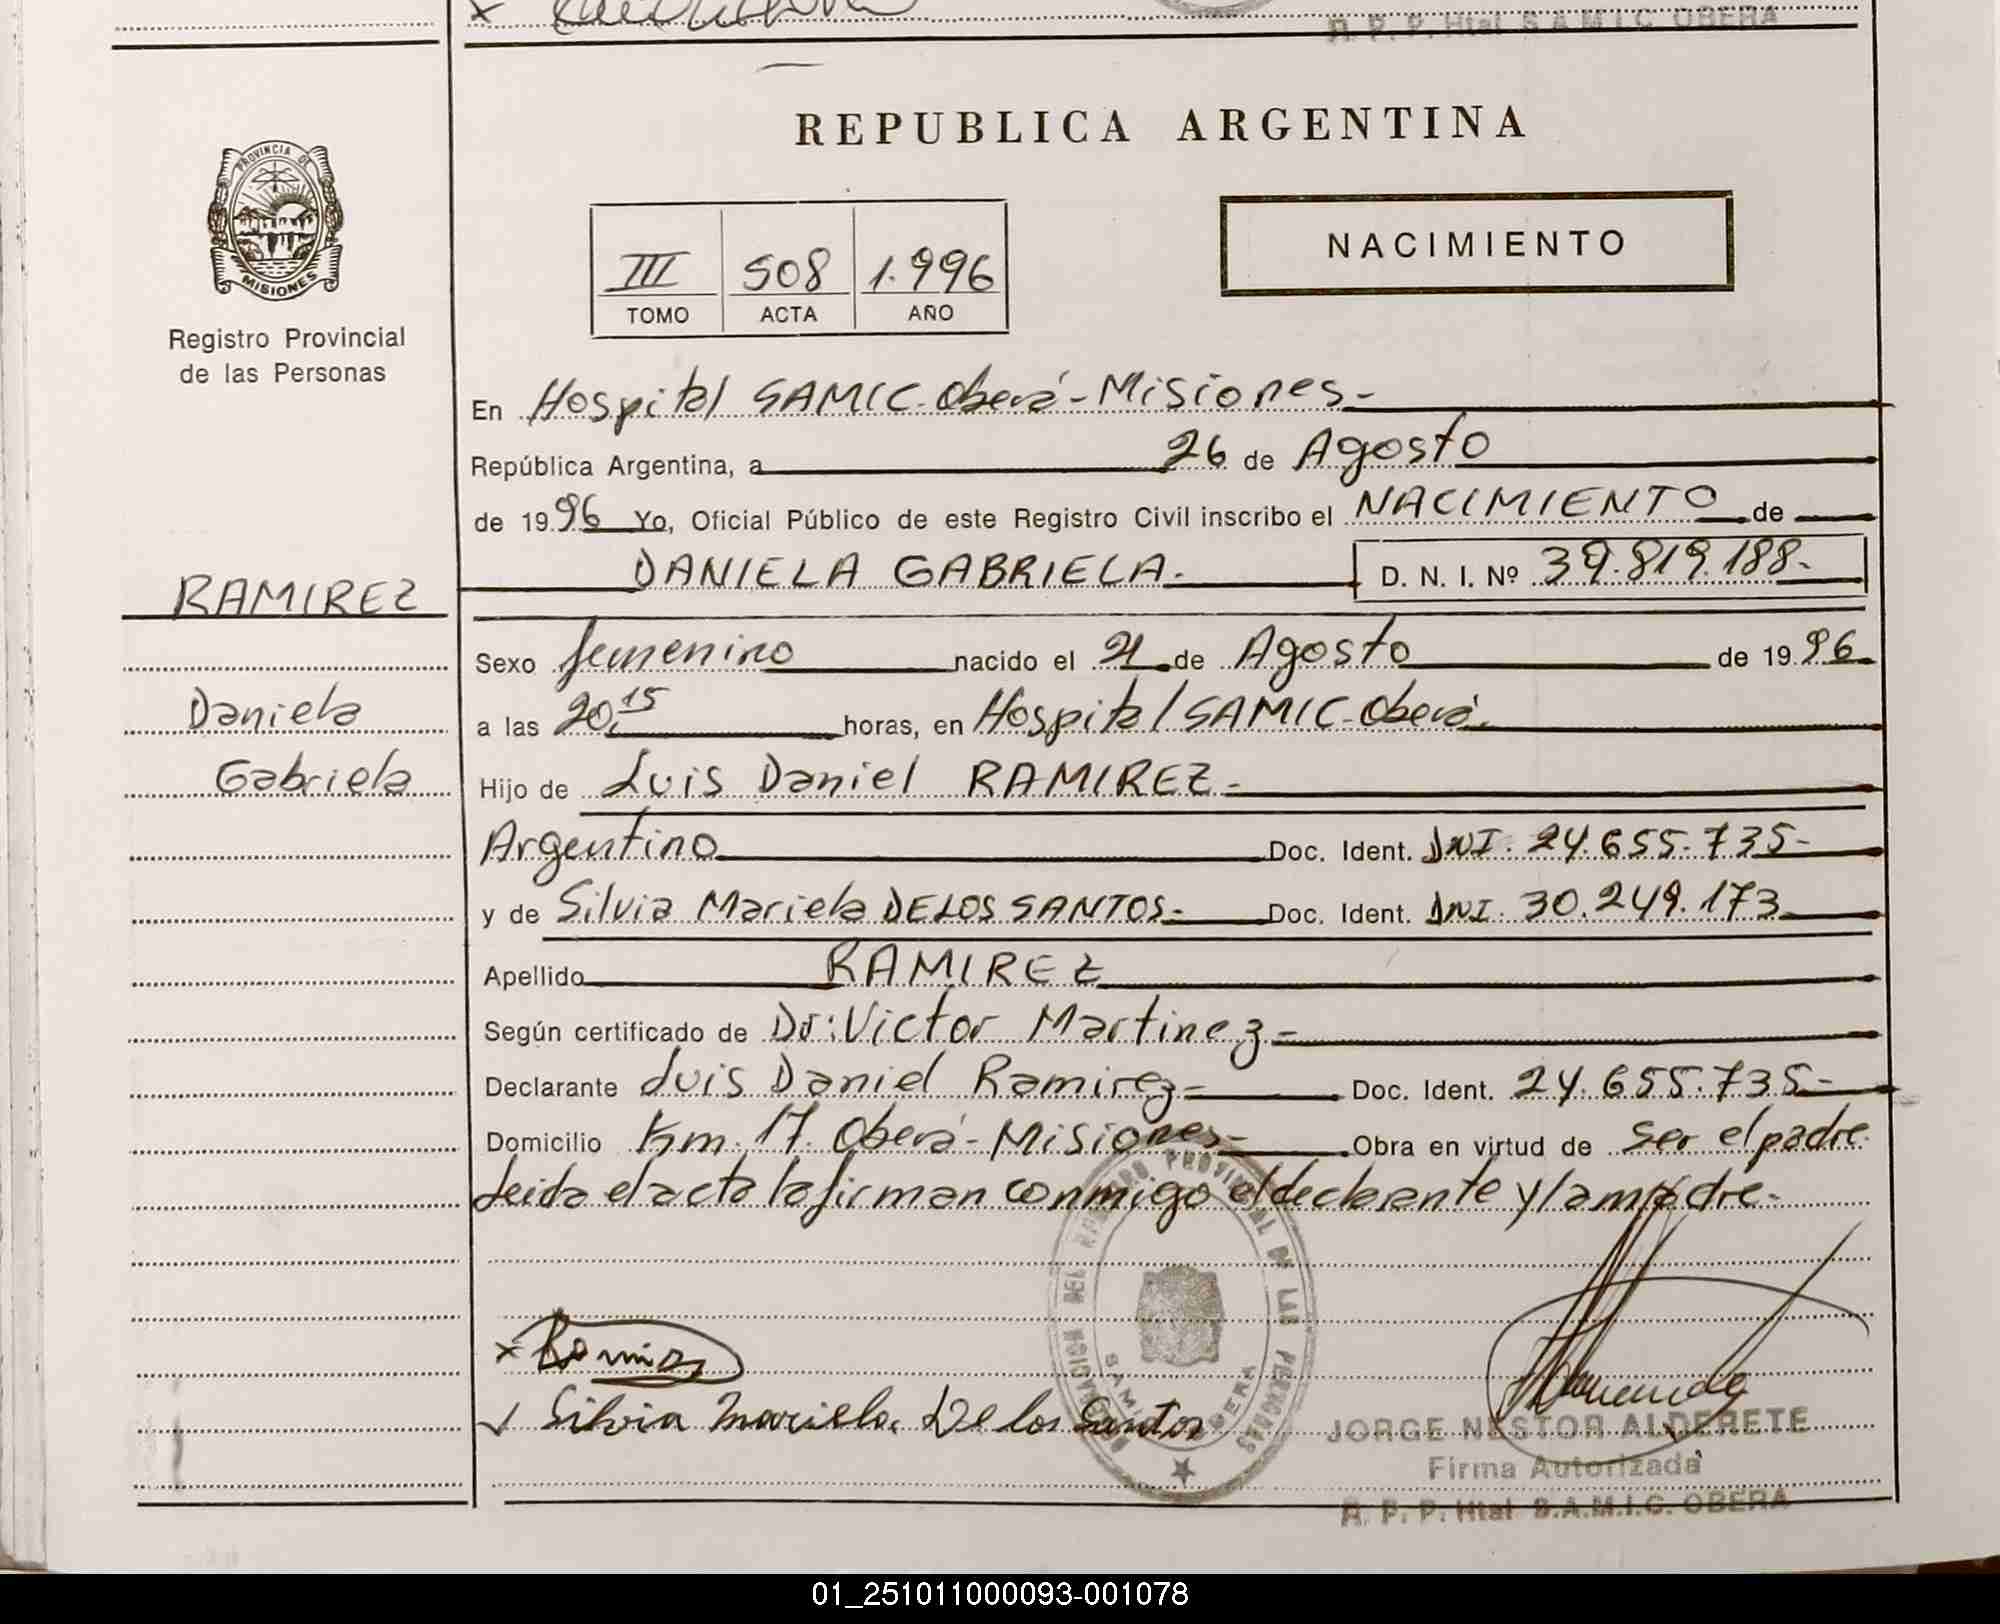 R. P. P. Htal S.A.M.I.C. OBERA
REPUBLICA ARGENTINA
PROVINCIA DE
MISIONES
Registro Provincial
de las Personas
NACIMIENTO
III 508 1.996
TOMO ACTA AÑO
En Hospital SAMIC-Oberá-Misiones-
República Argentina, a 26 de Agosto
de 1996 Yo, Oficial Público de este Registro Civil inscribo el NACIMIENTO de
DANIELA GABRIELA.- D. N. I. Nº 39.819.188-
RAMIREZ
Daniela
Gabriela
Sexo femenino nacido el 21 de Agosto de 1996
a las 20,15 horas, en Hospital SAMIC-Oberá.
Hijo de Luis Daniel RAMIREZ-
Argentino Doc. Ident. DNI. 24.655.735-
y de Silvia Mariela DE LOS SANTOS- Doc. Ident. DNI. 30.249.173
Apellido RAMIREZ
Según certificado de Dr: Victor Martinez-
Declarante Luis Daniel Ramirez- Doc. Ident. 24.655.735-
Domicilio Km. 17. Oberá-Misiones- Obra en virtud de ser el padre
Leida el acta la firman conmigo el declarante y la madre-
DELEGACION DEL REGISTRO PROVINCIAL DE LAS PERSONAS
SAMIC OBERA
x Ramirez
Silvia Mariela De los Santos
JORGE NESTOR ALDERETE
Firma Autorizada
R. P. P. Htal S.A.M.I.C. OBERA
01_251011000093-001078